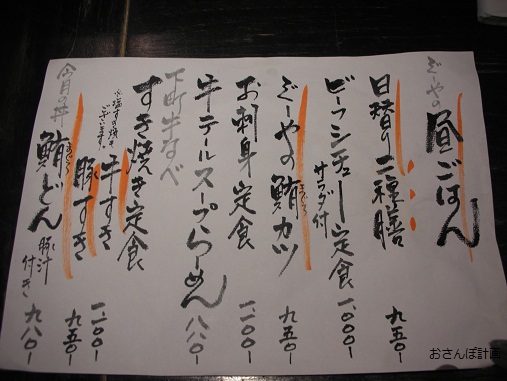 ぐーやの
昼ごはん
日替り二種膳 九五〇-
ビーフシチュー定食 一、〇〇〇-
サラダ付
ぐーやの鮪カツ 九五〇-
まぐろ
お刺身定食 一、二〇〇-
牛テールスープらーめん 八八〇-
下町牛なべ
すき焼き定食
ございます。
牛すき 一、一〇〇-
豚すき 九五〇-
今月の丼
鮪どん 九八〇-
まぐろ
豚汁付き
おさんぽ計画